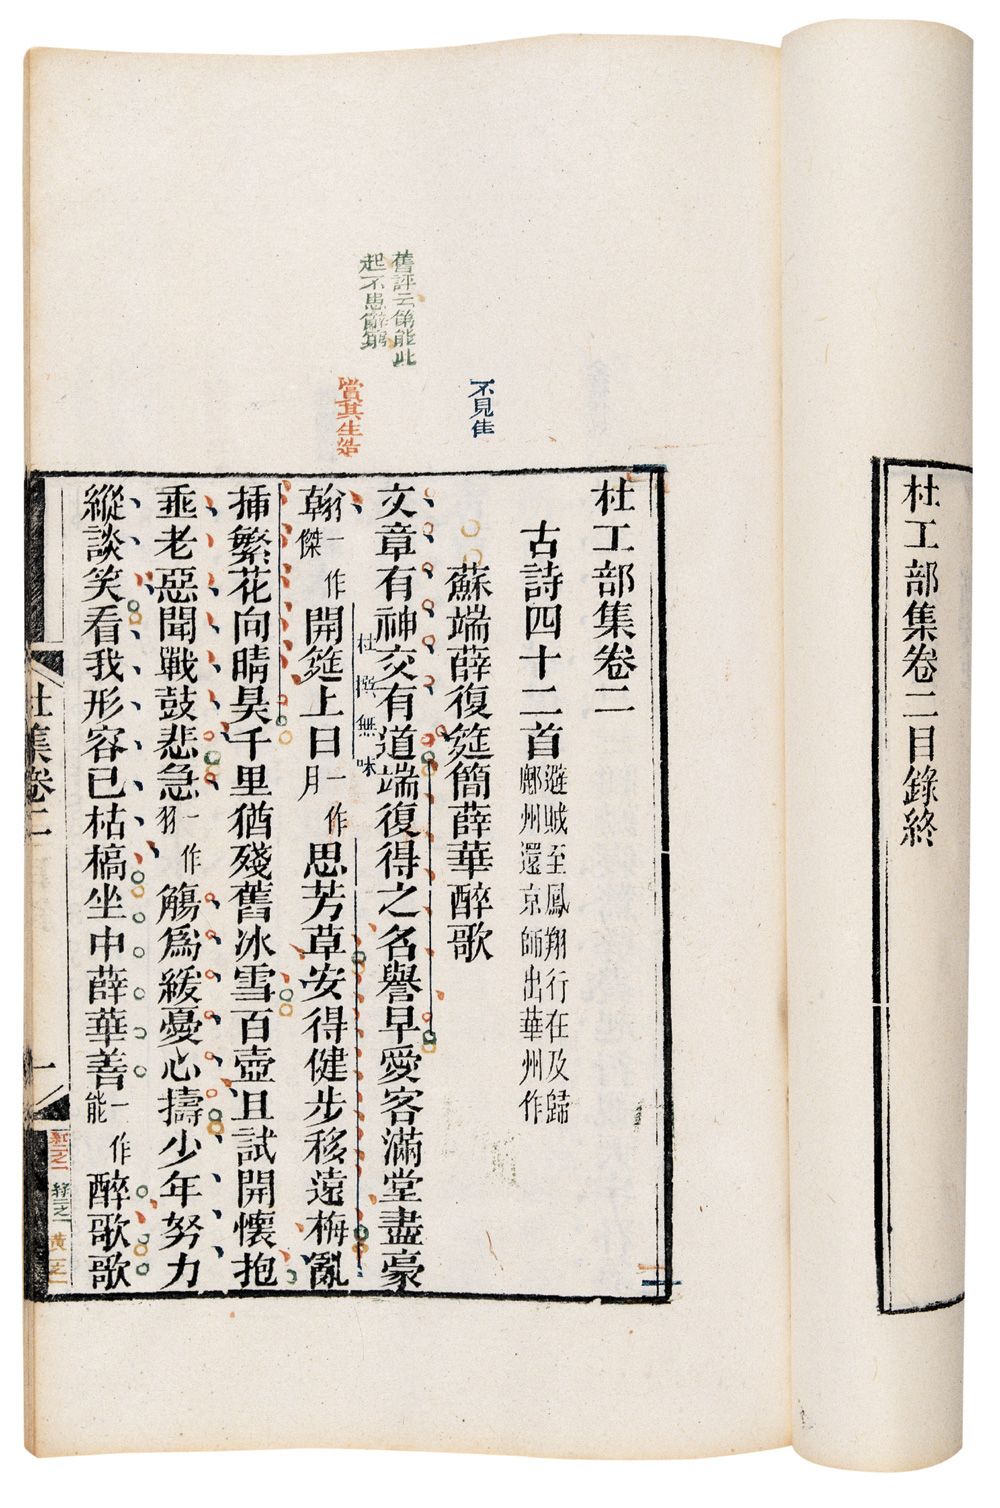 杜工部集卷二目錄終
杜工部集卷二
古詩四十二首 避賊至鳳翔行在及歸鄜州還京師出華州作
蘇端薛復筵簡薛華醉歌
文章有神交有道端復得之名譽早愛客滿堂盡豪
翰一作傑開筵上日一作月思芳草安得健步移遠梅亂
插繁花向晴昊千里猶殘舊冰雪百壺且試開懷抱
垂老惡聞戰鼓悲急一作羽觴為緩憂心擣少年努力
縱談笑看我形容已枯槁坐中薛華善一作能醉歌歌
不見佳
舊評云第能此
起不患辭窮
賞其生造
杜撰無味
杜集卷二
一